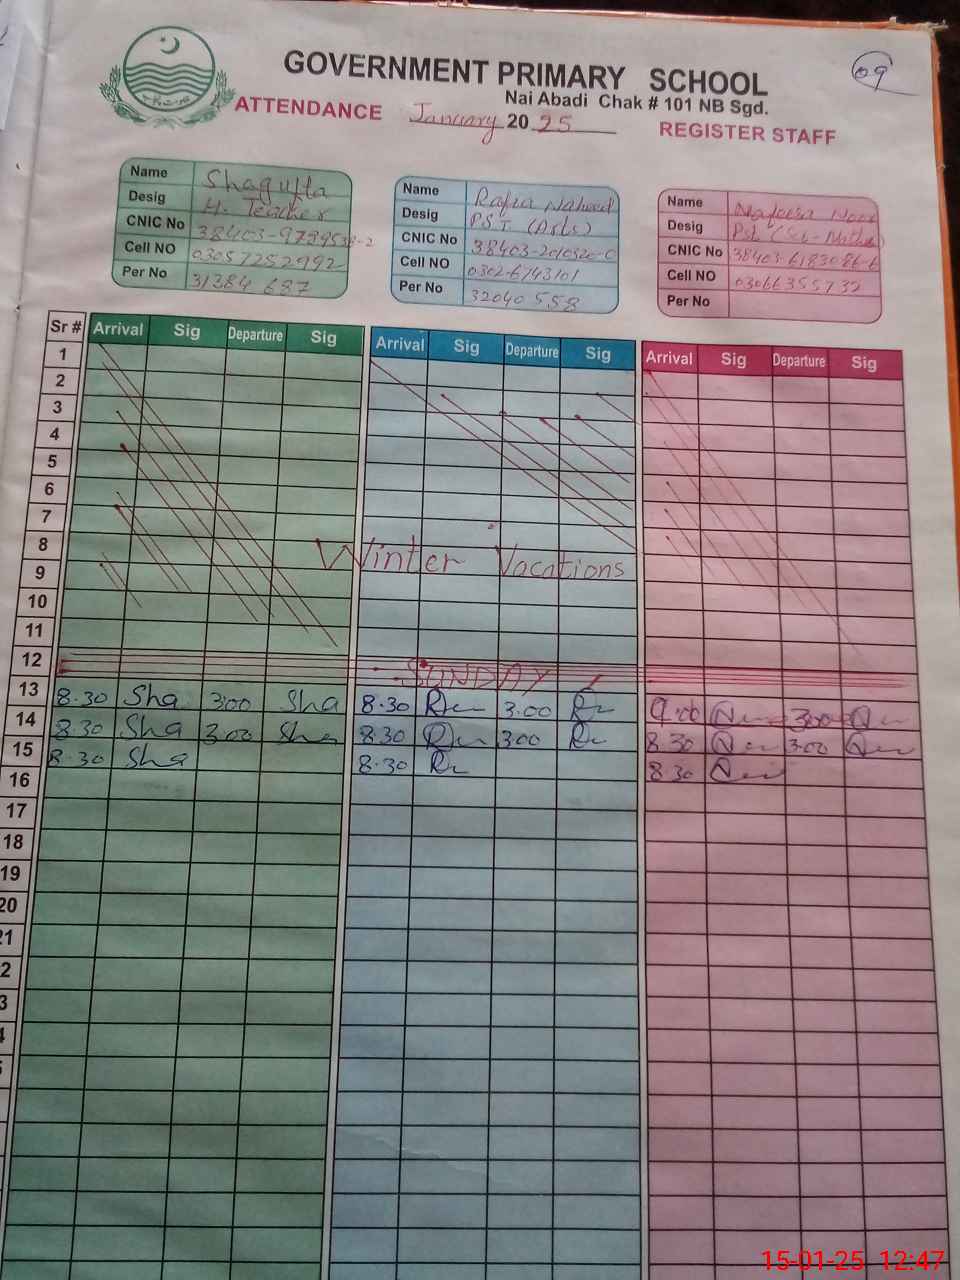 GOVERNMENT PRIMARY SCHOOL
09
Nai Abadi Chak # 101 NB Sgd.
ATTENDANCE January 2025 REGISTER STAFF
Name Shagufta
Desig H. Teacher
CNIC No
Cell NO 03057252992
Per No 31384 687
Name Rafia Naheed
Desig PST (Arts)
CNIC No 38403-2010320-0
Cell NO 0302-6743101
Per No 32040558
Name Nafeesa Noor
Desig
CNIC No 38403-6183086-6
Cell NO 03066355732
Per No
Sr # Arrival Sig Departure Sig Arrival Sig Departure Sig Arrival Sig Departure Sig
1
2
3
4
5
6
7
8 Winter Vacations
9
10
11
12 SUNDAY
13 8.30 Sha 3:00 Sha 8.30 3.00 9.00 3.00
14 8.30 Sha 3.00 Sha 8.30 3.00 8.30 3.00
15 8.30 Sha 8.30 8.30
16
17
18
19
20
21
2
3
4
15-01-25 12:47